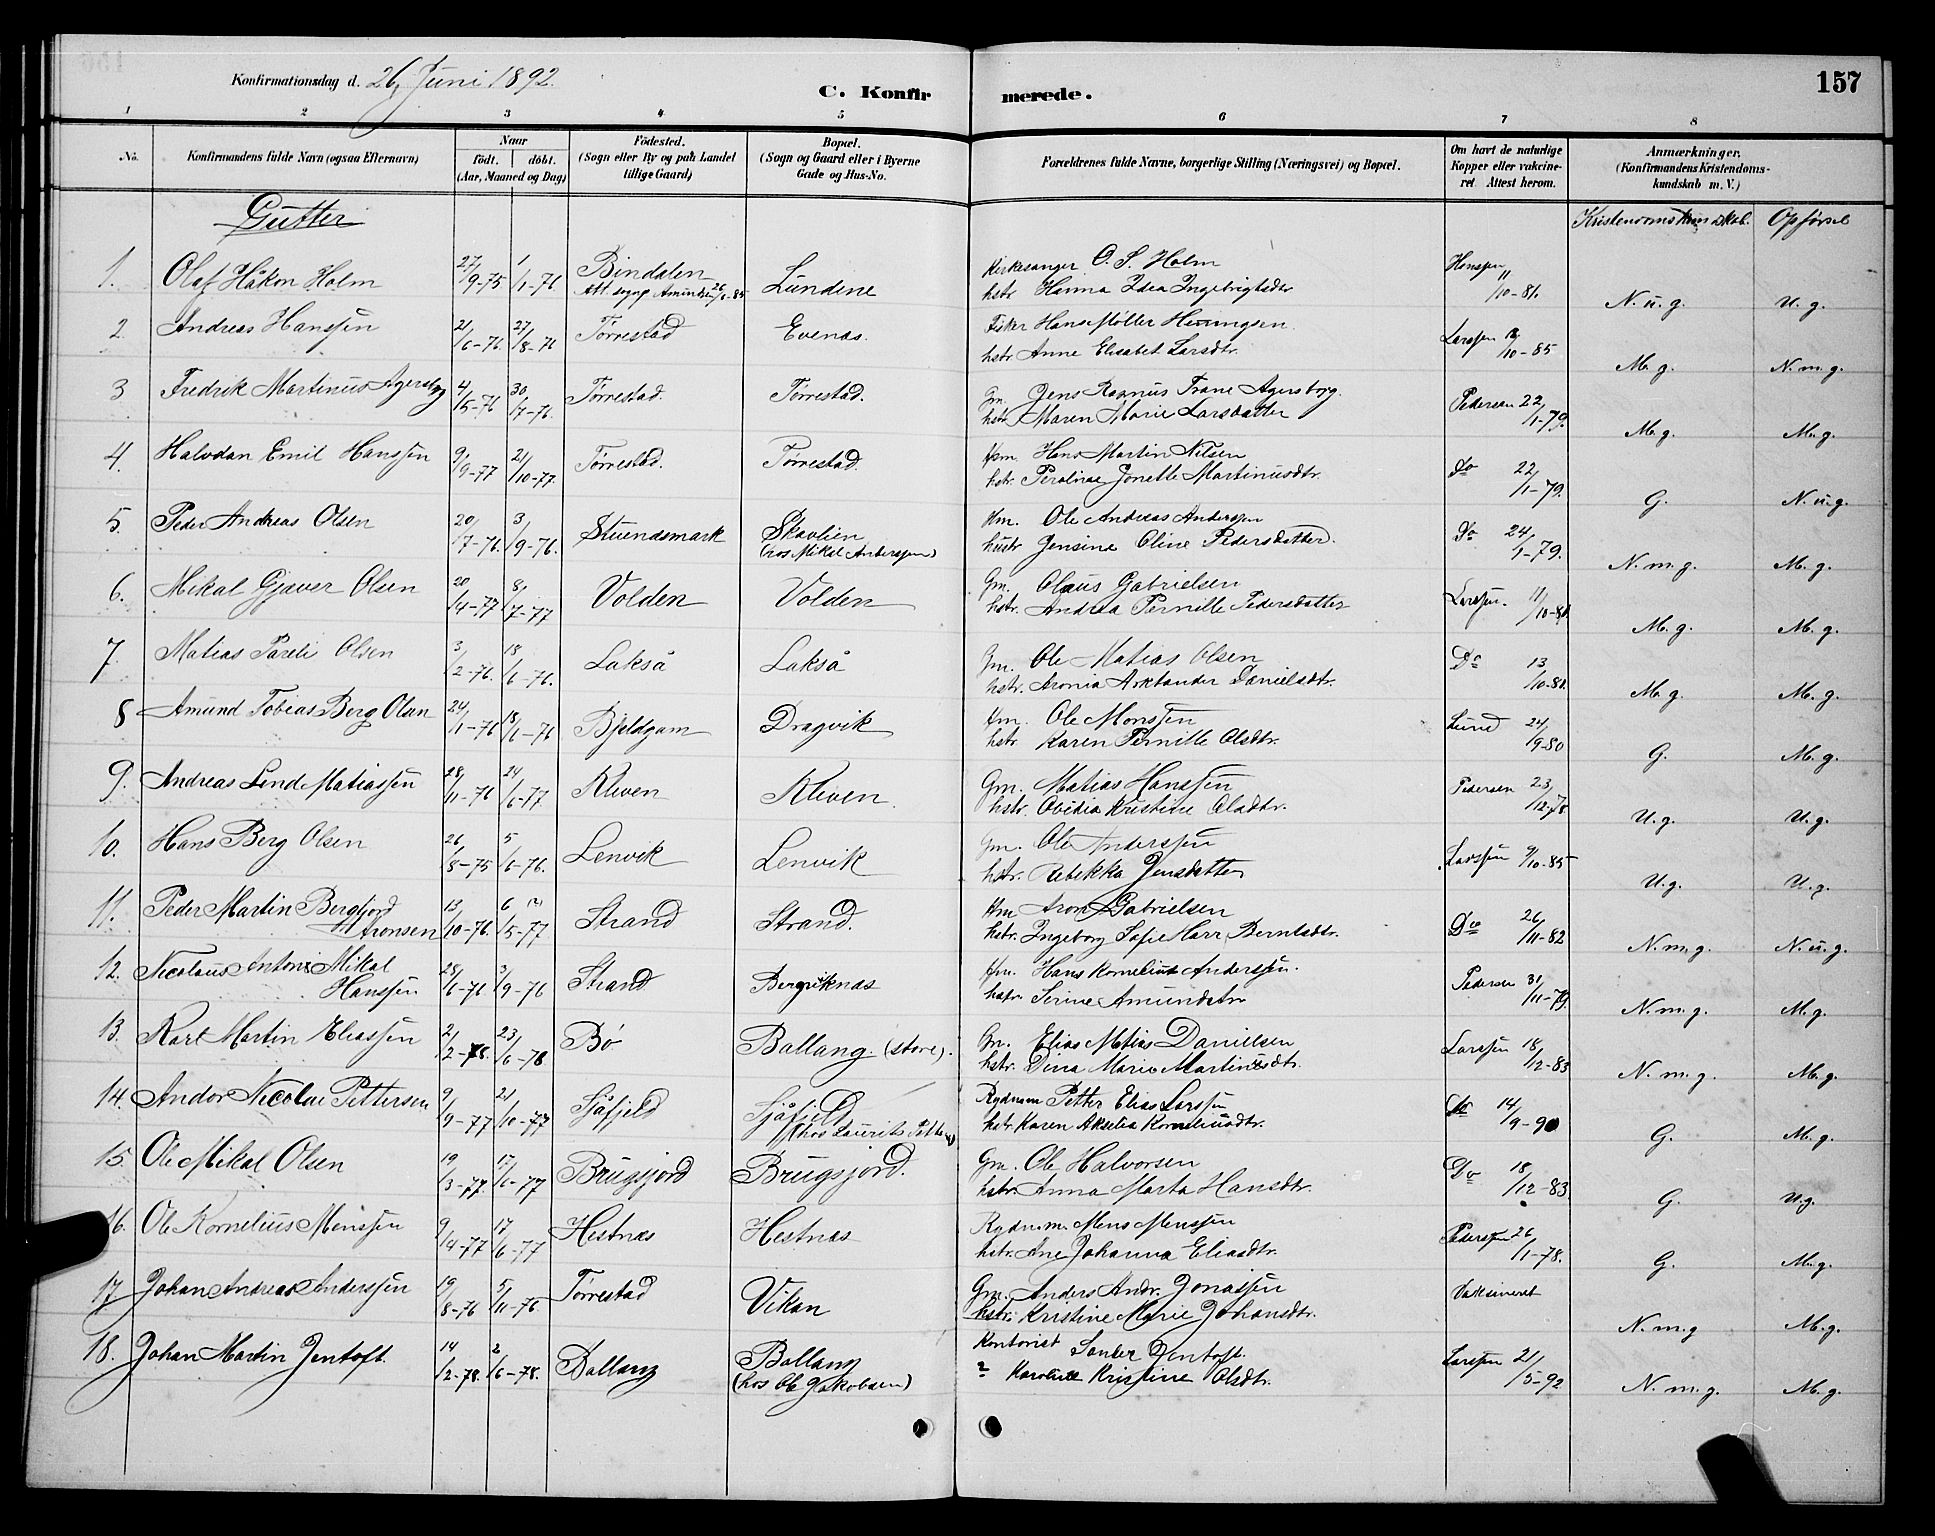 157
Konfirmationsdag d. 26 Juni 1892.
C. Konfirmerede.
1 2 3 4 5 6 7 8
No.
Konfirmandens fulde Navn (ogsaa Efternavn)
Naar
födt. | döbt.
(Aar, Maaned og Dag)
Födested.
(Sogn eller By og paa Landet
tillige Gaard)
Bopæl.
(Sogn og Gaard eller i Byerne
Gade og Hus-No.
Forældrenes fulde Navne, borgerlige Stilling (Næringsvei) og Bopæl.
Om havt de naturlige
Kopper eller vakcine-
ret Attest herom.
Anmærkninger.
(Konfirmandens Kristendoms-
kundskab m. V.)
Gutter
Kristendomskundskab. Opførsel
1. Olaf Håkon Holm 27/9-75 1/1-76 Bindalen Lundene Kirkesanger O. S. Holm Hanssen 11/10-81. N. u. g. U. g.
Att sogpr Amundsen 26/6-85 hstr Hanna Idea Ingebrigtsdtr
2. Andreas Hanssen 21/6-76. 27/8-76 Tørrestad Evenas. Fisker Hans Møller Henningsen Larssen 12/10-85 M. g. N. m. g.
hstr Anne Elisabet Larsdtr.
3 Fredrik Martinus Agersborg 4/5-76 30/7-76. Tørrestad. Tørrestad. Gm. Jens Rasmus Trane Agersborg. Pedersen 22/1-79. M. g. M. g.
hstr Maren Marie Larsdatter
4. Halvdan Emil Hanssen 9/9-77 21/10-77. Tørrestad. Tørrestad. Hsm. Hans Martin Nilsen Do 22/1-79. G. N. u. g.
hstr. Peroline Jonette Martinusdtr.
5. Peder Andreas Olsen 20/7-76. 3/9-76. Stuendsmark Skavlien Hm. Ole Andreas Anderssen Do 24/1-79. N. m. g. M. g.
(hos Mikal Anderssen) hustr Jensine Oline Pedersdatter.
6. Mikal Gjæver Olsen 20/4-77 8/7-77 Volden Volden Gm. Olaus Gabrielsen Larssen. 11/10-81. M. g. M. g.
hstr. Andrea Pernille Pedersdatter
7. Matias Pareli Olsen 3/2-76. 18/6-76. Lakså Lakså Gm. Ole Matias Olsen Do 13/10-81. M. g. M. g.
hstr. Aronia Arktander Danielsdtr.
8 Amund Tobias Berg Olsen 24/1-76 18/6-76 Bjeldgam Dragvik Hm. Ole Monssen Lund 24/9-80 G. M. g.
hstr. Karen Pernille Olsdtr.
9. Andreas Lind Matiassen 28/11-76 24/6-77 Kleven Kleven. Gm. Matias Hanssen Pedersen 23/12-78 U. g. U. g.
hstr. Ovidia Kristine Olsdtr.
10. Hans Berg Olsen 26/8-75 5/6-76. Lenvik Lenvik Gm. Ole Anderssen Larssen 9/10-85 U. g. U. g.
hstr. Rebekka Jensdatter
11. Peder Martin Bergfjord 13/10-76. 6/5-77 Strand Strand. Hm Aron Gabrielsen Do 26/11-82 N. m. g. N. u. g.
Aronsen hstr. Ingeborg Sofie Marr Berntsdtr.
12. Nicolaus Antoni Mikal 28/6-76 3/9-76 Strand Bergviknas Hm. Hans Kornelius Anderssen. Pedersen 31/11-79. N. m. g. M. g.
Hanssen hstr. Serine Amundsdtr
13. Karl Martin Eliassen 2/2-78. 23/6-78 Bø Ballang. (store). Gm. Elias Matias Danielsen Larssen 18/12-83 N. m. g. M. g.
hstr. Dina Marie Martinusdtr.
14. Andor Nicolai Pettersen 9/9-77 21/10-77 Sjåfjeld Sjåfjeld Rydnsm Petter Elias Larssen Do 14/9-90 G. M. g.
(hos Laurits Petters) hstr. Karen Akselia Korneliusdtr.
15. Ole Mikal Olsen 19/3-77. 17/6-77 Brugsjord Brugsjord. Gm. Ole Halvorsen Do 18/12-83. G. U. g.
hstr. Anna Marta Hansdtr.
16. Ole Kornelius Monssen 9/4-77 17/6-77 Hestnas Hestnas Rydn. m. Mons Monssen Pedersen 26/1-78. G. M. g.
hstr. Ane Johanna Eliasdtr.
17 Johan Andreas Anderssen 19/8-76 5/11-76 Tørrestad Vikan Gm. Anders Andr. Jonassen Vaksineret N. m. g M. g.
hstr. Kristine Marie Johansdtr.
18. Johan Martin Jentoft. 14/2-78. 2/6-78. Ballang Ballang Kontorist Jentoft. Larssen 21/5-92 N. m. g. M. g.
(hos Ole Jakobsen) Karoline Kristine Olsdtr.